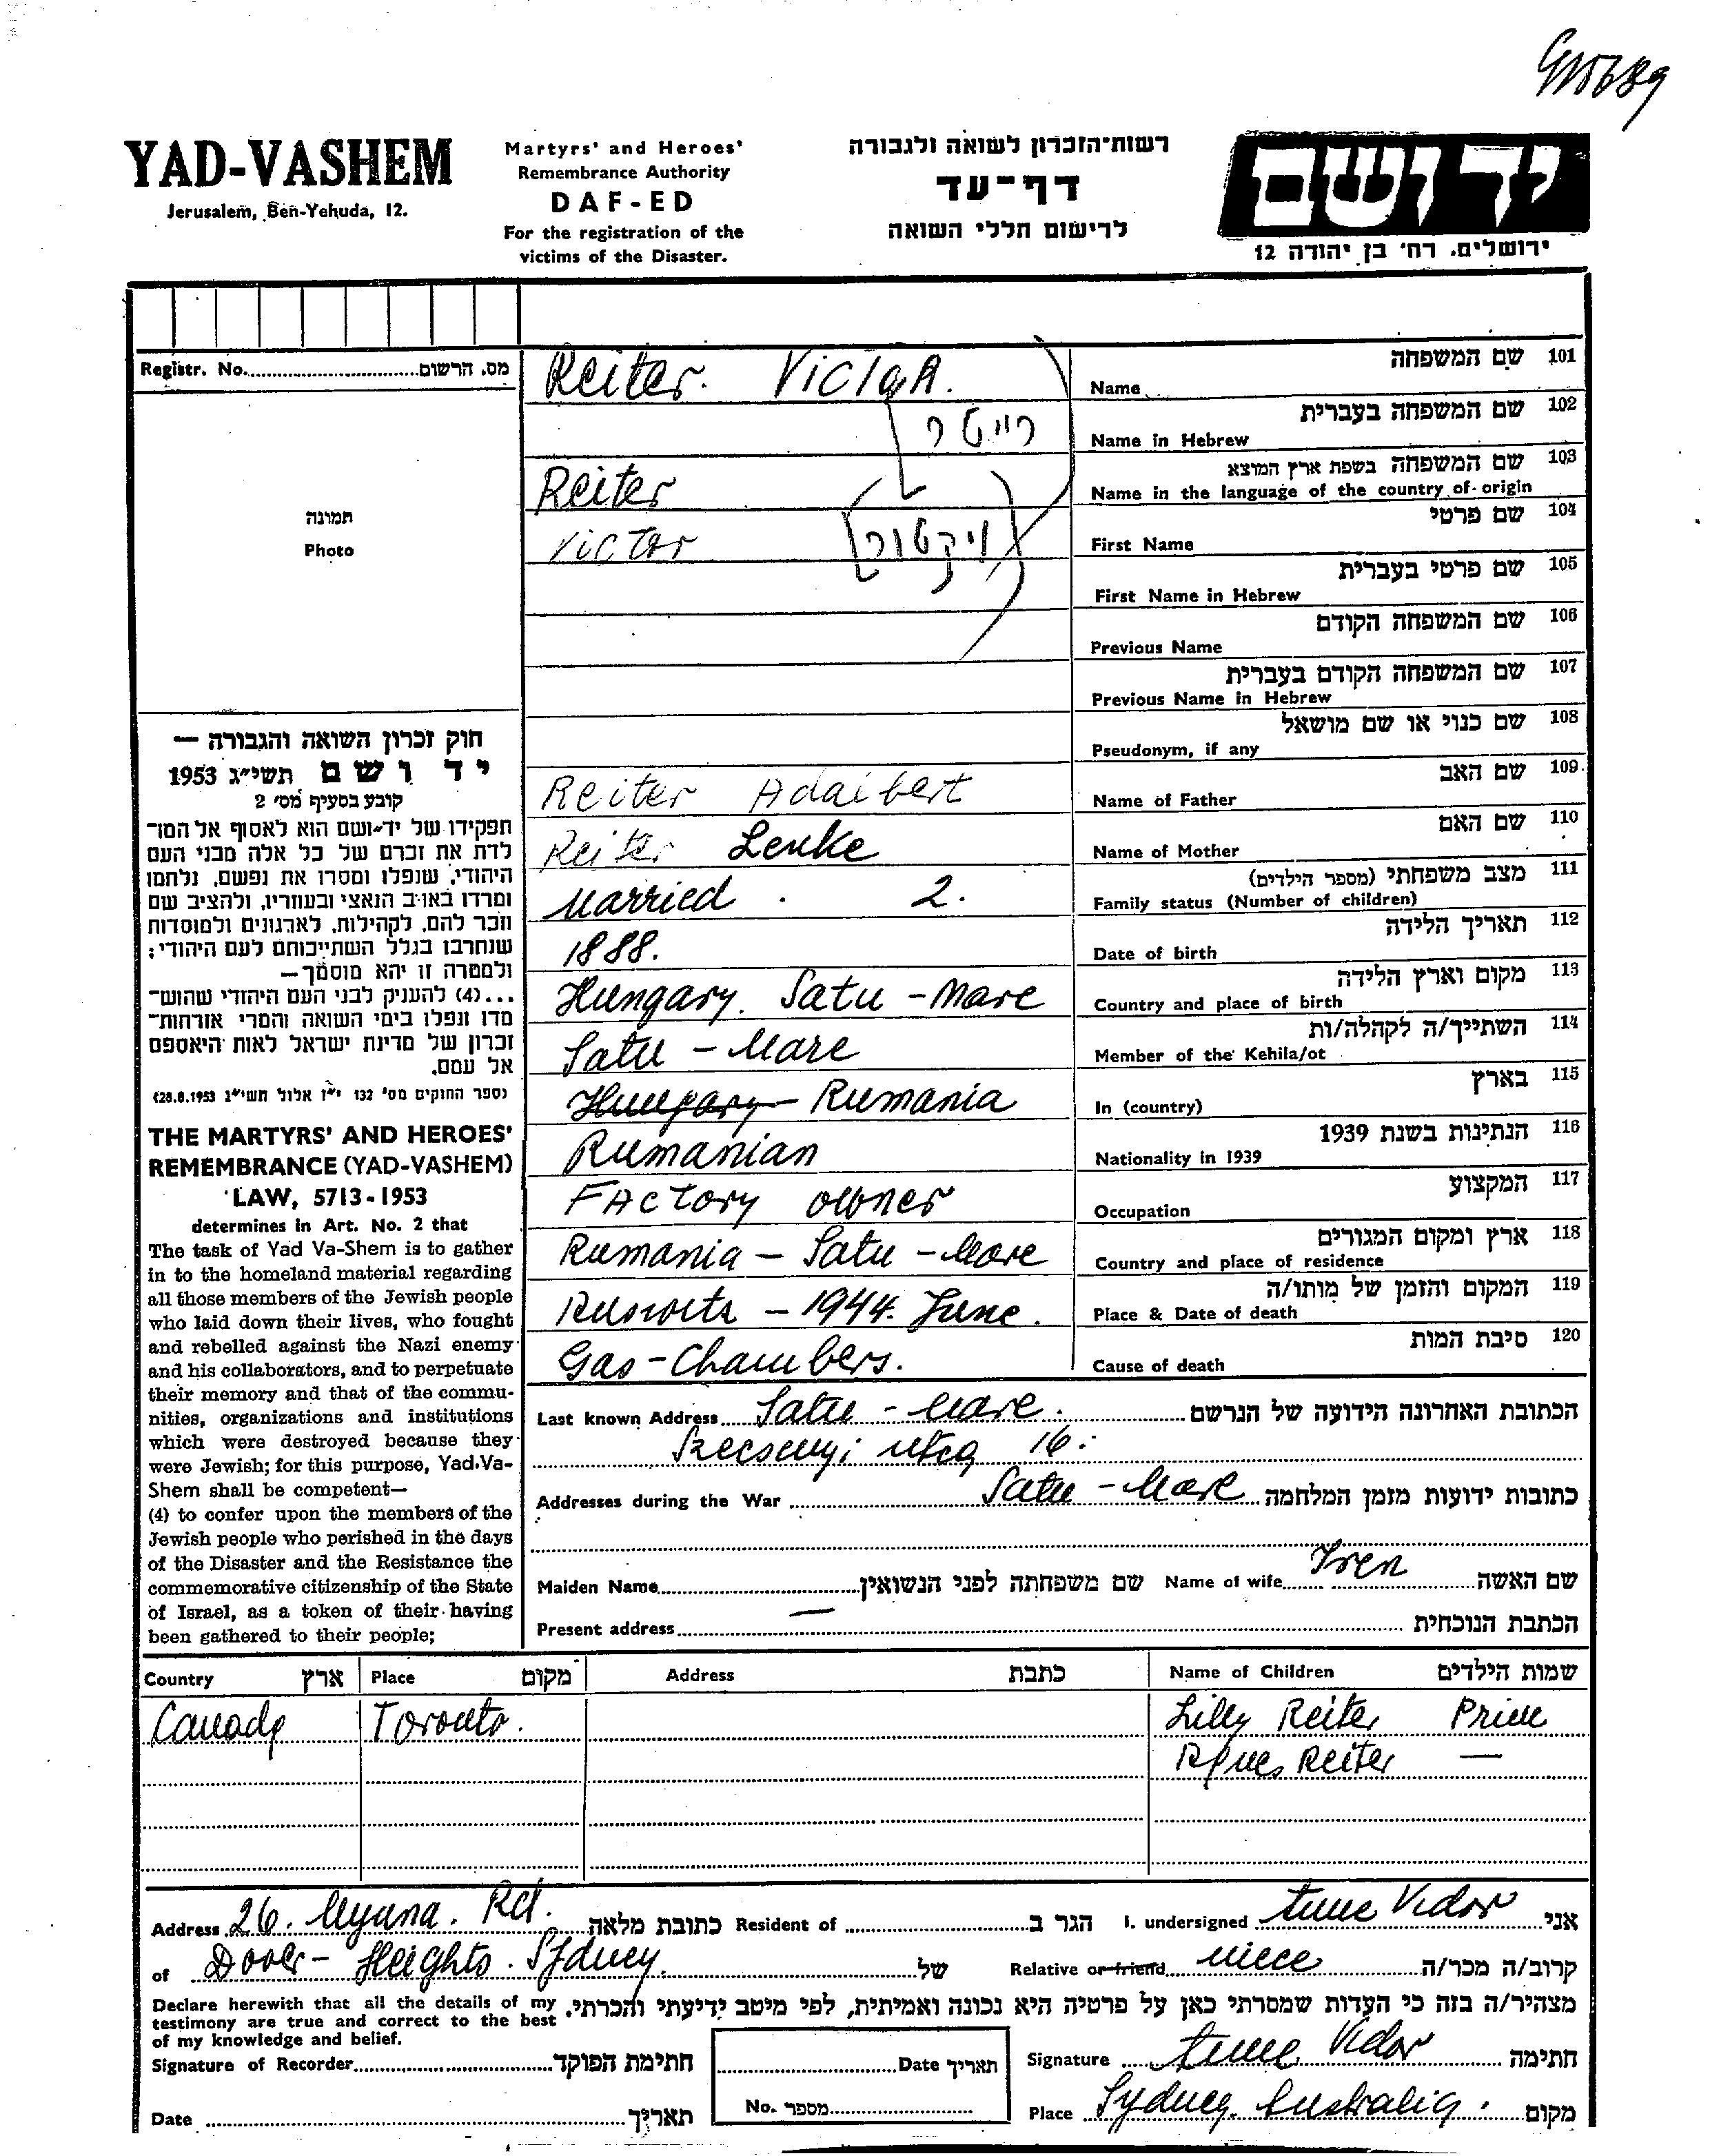 YAD-VASHEM
Jerusalem, Ben-Yehuda, 12.
Martyrs' and Heroes'
Remembrance Authority
DAF-ED
For the registration of the
victims of the Disaster.
רשות-הזכרון לשואה ולגבורה
דף-עד
לרישום חללי השואה
יד ושם
ירושלים, רח' בן יהודה 12
Registr. No. מס. הרשום
תמונה
Photo
Reiter. Victor. Name שם המשפחה 101
רייטר Name in Hebrew שם המשפחה בעברית 102
Reiter Name in the language of the country of origin שם המשפחה בשפת ארץ המוצא 103
Victor ויקטור First Name שם פרטי 104
First Name in Hebrew שם פרטי בעברית 105
Previous Name שם המשפחה הקודם 106
Previous Name in Hebrew שם המשפחה הקודם בעברית 107
Pseudonym, if any שם כנוי או שם מושאל 108
Reiter Adalbert Name of Father שם האב 109
Reiter Lenke Name of Mother שם האם 110
Married. 2. Family status (Number of children) מצב משפחתי (מספר הילדים) 111
1888. Date of birth תאריך הלידה 112
Hungary. Satu-Mare Country and place of birth מקום וארץ הלידה 113
Satu-Mare Member of the Kehila/ot השתייך/ה לקהלה/ות 114
Hungary Rumania In (country) בארץ 115
Rumanian Nationality in 1939 הנתינות בשנת 1939 116
Factory owner Occupation המקצוע 117
Rumania - Satu-Mare Country and place of residence ארץ ומקום המגורים 118
- 1944. June. Place & Date of death המקום והזמן של מותו/ה 119
Gas-Chambers. Cause of death סיבת המות 120
חוק זכרון השואה והגבורה –
יד ושם תשי"ג 1953
קובע בסעיף מס' 2
תפקידו של יד-ושם הוא לאסוף אל המו־
לדת את זכרם של כל אלה מבני העם
היהודי, שנפלו ומסרו את נפשם, נלחמו
ומרדו באויב הנאצי ובעוזריו, ולהציב שם
וזכר להם, לקהילות, לארגונים ולמוסדות
שנחרבו בגלל השתייכותם לעם היהודי;
ולמטרה זו יהא מוסמך –
...(4) להעניק לבני העם היהודי שהוש־
מדו ונפלו בימי השואה והמרי אזרחות־
זכרון של מדינת ישראל לאות היאספם
אל עמם.
(ספר החוקים מס' 132 י"ז אלול תשי"ג 28.8.1953)
THE MARTYRS' AND HEROES'
REMEMBRANCE (YAD-VASHEM)
LAW, 5713-1953
determines in Art. No. 2 that
The task of Yad Va-Shem is to gather
in to the homeland material regarding
all those members of the Jewish people
who laid down their lives, who fought
and rebelled against the Nazi enemy
and his collaborators, and to perpetuate
their memory and that of the commu-
nities, organizations and institutions
which were destroyed because they
were Jewish; for this purpose, Yad Va-
Shem shall be competent—
(4) to confer upon the members of the
Jewish people who perished in the days
of the Disaster and the Resistance the
commemorative citizenship of the State
of Israel, as a token of their having
been gathered to their people;
Last known Address Satu-Mare. הכתובת האחרונה הידועה של הנרשם
16.
Addresses during the War Satu-Mare כתובות ידועות מזמן המלחמה
Maiden Name שם משפחתה לפני הנשואין Name of wife Iren שם האשה
Present address — הכתבת הנוכחית
Country ארץ Place מקום Address כתבת Name of Children שמות הילדים
Canada Toronto. Lilly Reiter
Reiter —
Address 26. Myuna. Rd. כתובת מלאה Resident of הגר ב I. undersigned Vidor אני
of Dover-Heights. Sydney. של Relative or friend niece קרוב/ה מכר/ה
Declare herewith that all the details of my מצהיר/ה בזה כי העדות שמסרתי כאן על פרטיה היא נכונה ואמיתית, לפי מיטב ידיעתי והכרתי.
testimony are true and correct to the best
of my knowledge and belief.
Signature of Recorder חתימת הפוקד Date תאריך Signature Vidor חתימה
Date תאריך No. מספר Place Sydney. Australia. מקום